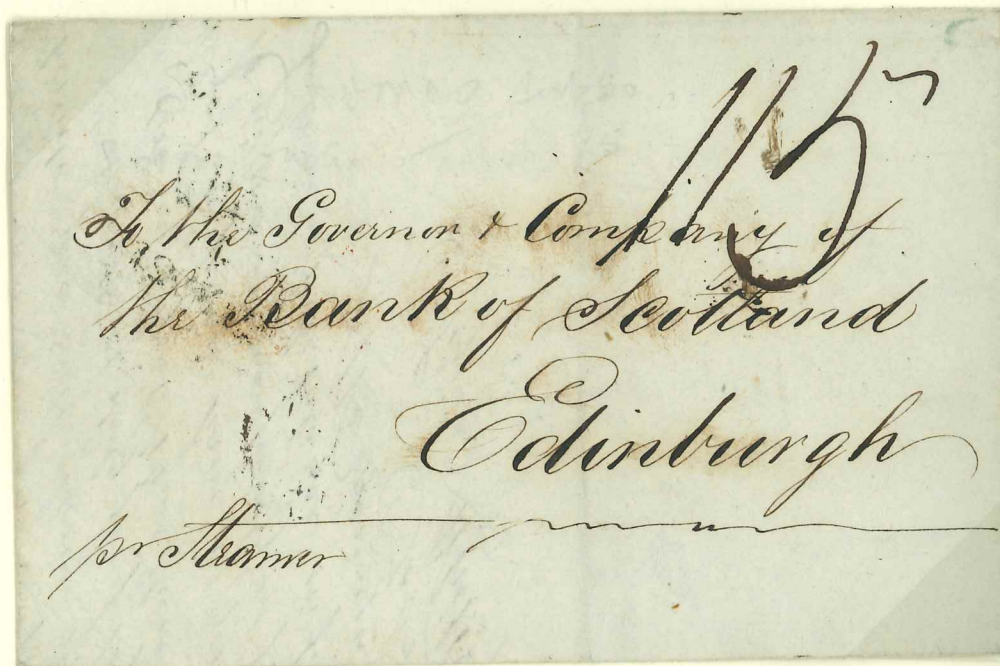 115
To the Governor & Company of
the Bank of Scotland
Edinburgh
pr Steamer